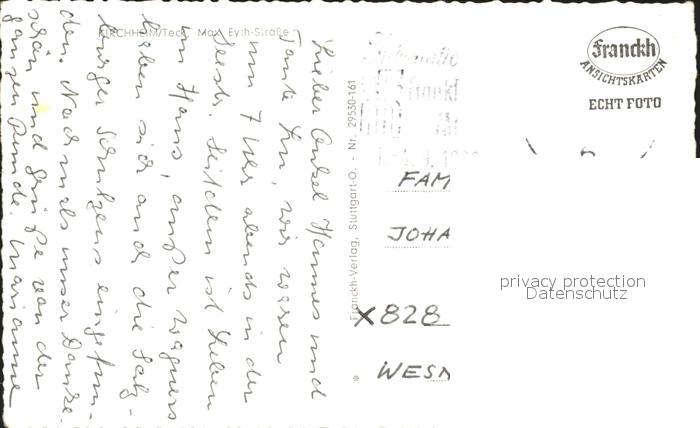 KIRCHHEIM/Teck Max Eyth-Straße
Lieber Onkel Hannes und
Tante
, wir waren
um 7 Uhr abends in der
ist Leben
im Haus, außer Wagners
haben sich auch die
eingefun-
den. Nochmals unser Danke-
schön und Grüße von der
ganzen Runde. Marianne
Franckh-Verlag, Stuttgart-O. - Nr. 29530-161
Franckh
ANSICHTSKARTEN
ECHT FOTO
FAM
JOHA
X828
WESN
privacy protection
Datenschutz